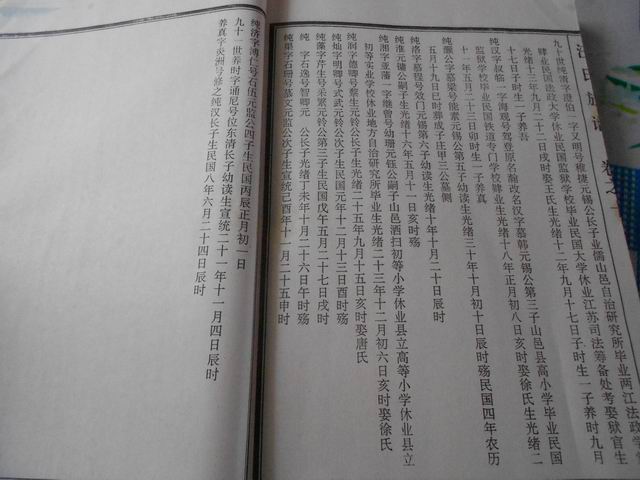 九十世纯澄字澄伯一字又明号稚提元锡公长子业儒山邑自治研究所毕业两江法政学堂
肄业民国法政大学休业民国监狱学校毕业民国大学休业江苏司法筹备处考娶狱官生
光绪十三年九月二十二日戌时娶王氏生光绪十二年九月十七日子时生一子养时九月
十七日子时生一子养吾
纯汉字叔临一字海观号驾登原名瀚改名汉字墓韩元锡公第三子山邑县高小学毕业民国
监狱学校毕业民国铁道专门学校肄业生光绪十八年正月初八日亥时娶徐氏生光绪二
十一年五月二十三日卯时生一子养真
纯灏公字墓梁号能素元锡公第五子幼读生光绪三十年十月初十日辰时殇民国四年农历
五月十九日巳时葬成子庄甲三公墓侧
纯洛字墓程号效门元锡第六子幼读生光绪十年十月二十日
纯淮元镛公嗣子生光绪十六年五月十一日亥时殇
纯湘字亚藩一字继曾号幼珊元钰公嗣子山邑酒扫初等小学休业县立高等小学休业县立
初等实业学校休业地方自治研究所毕业生光绪二十三年十二月初六日亥时娶徐氏
纯润字德卿号黎生元铃公长子生光绪二十五年九月十五日亥时娶唐氏
纯灿字明卿号式武元铃公次子生民国元年十二月十三日酉时殇
纯藻字芹生号采繁元铃公第三子生民国戊午五月二十七日戌时
纯　字石逸号智卿元　公长子生光绪丁未年十月二十六日午时殇
纯果字石珊号墓文元监公次子生宣统己酉年十一月二十五申时
纯济字溥仁号石伍元监公四子生民国丙辰正月初一日
九十一世养时字诵尼号位东清长子幼读生宣统二十一年十一月四日辰时
养真字炎洲号修之纯汉长子生民国八年六月二十四日辰时